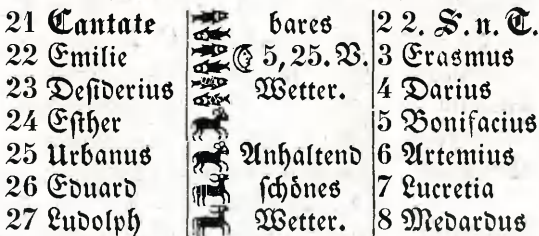 21 Cantate bares 2 2. S. n. T.
22 Emilie 5, 25. V. 3 Erasmus
23 Desiderius Wetter. 4 Darius
24 Esther 5 Bonifacius
25 Urbanus Anhaltend 6 Artemius
26 Eduard schönes 7 Lucretia
27 Ludolph Wetter. 8 Medardus